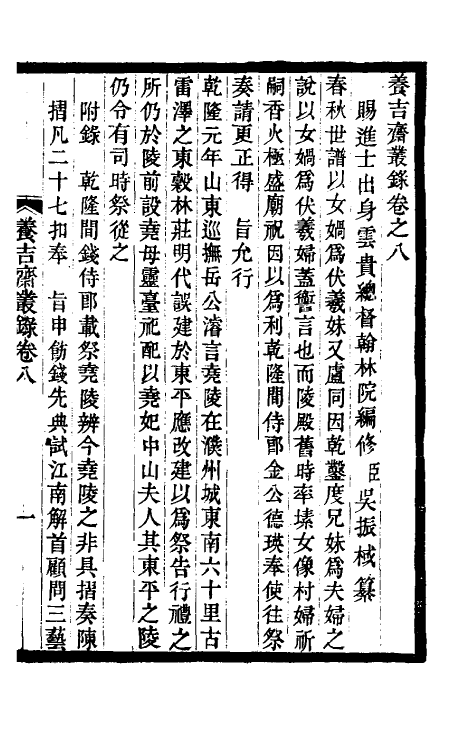 養吉齋叢錄卷之八
賜進士出身雲貴總督翰林院編修臣吳振棫纂
春秋世譜以女媧爲伏羲妹又盧同因乾鑿度兄妹爲夫婦之
說以女媧爲伏羲婦蓋讏言也而陵殿舊時率塐女像村婦祈
嗣香火極盛廟祝因以爲利乾隆間侍郞金公德瑛奉使往祭
奏請更正得 旨允行
乾隆元年山東巡撫岳公濬言堯陵在濮州城東南六十里古
雷澤之東榖林莊明代誤建於東平應改建以爲祭告行禮之
所仍於陵前設堯母靈臺祀配以堯妃中山夫人其東平之陵
仍令有司時祭從之
附錄 乾隆間錢侍郞載祭堯陵辨今堯陵之非具摺奏陳
摺凡二十七扣奉 旨申飭錢先典試江南解首顧問三藝
養吉齋叢錄卷八
一